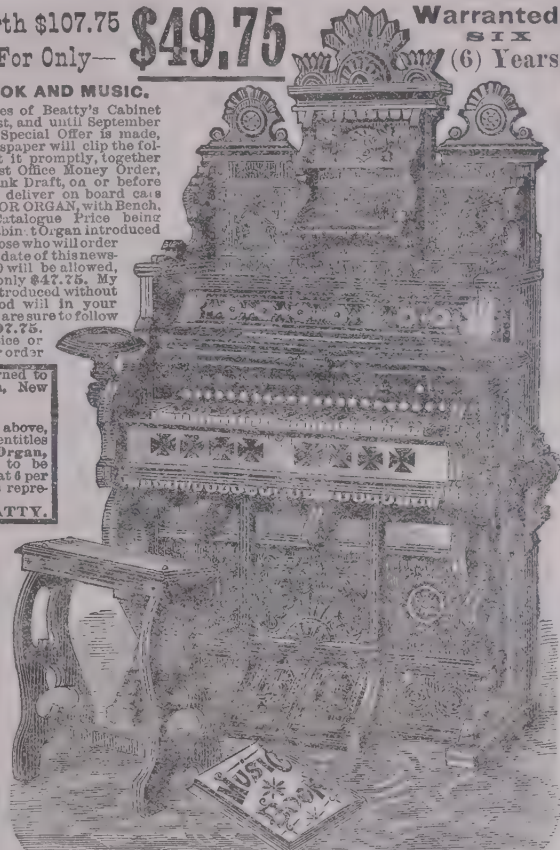 rth $107.75
For Only—
$49.75
Warranted
SIX
(6) Years
OOK AND MUSIC.
es of Beatty's Cabinet
st, and until September
Special Offer is made,
spaper will clip the fol-
t it promptly, together
st Office Money Order,
nk Draft, on or before
deliver on board cars
OR ORGAN, with Bench,
Catalogue Price being
Organ introduced
ose who will order
date of this news-
will be allowed,
only $47.75. My
troduced without
od will in your
are sure to follow
07.75.
ice or
order
rned to
New
above,
entitles
Organ,
to be
at 6 per
repre-
ATTY.
MUSIC
BOOK